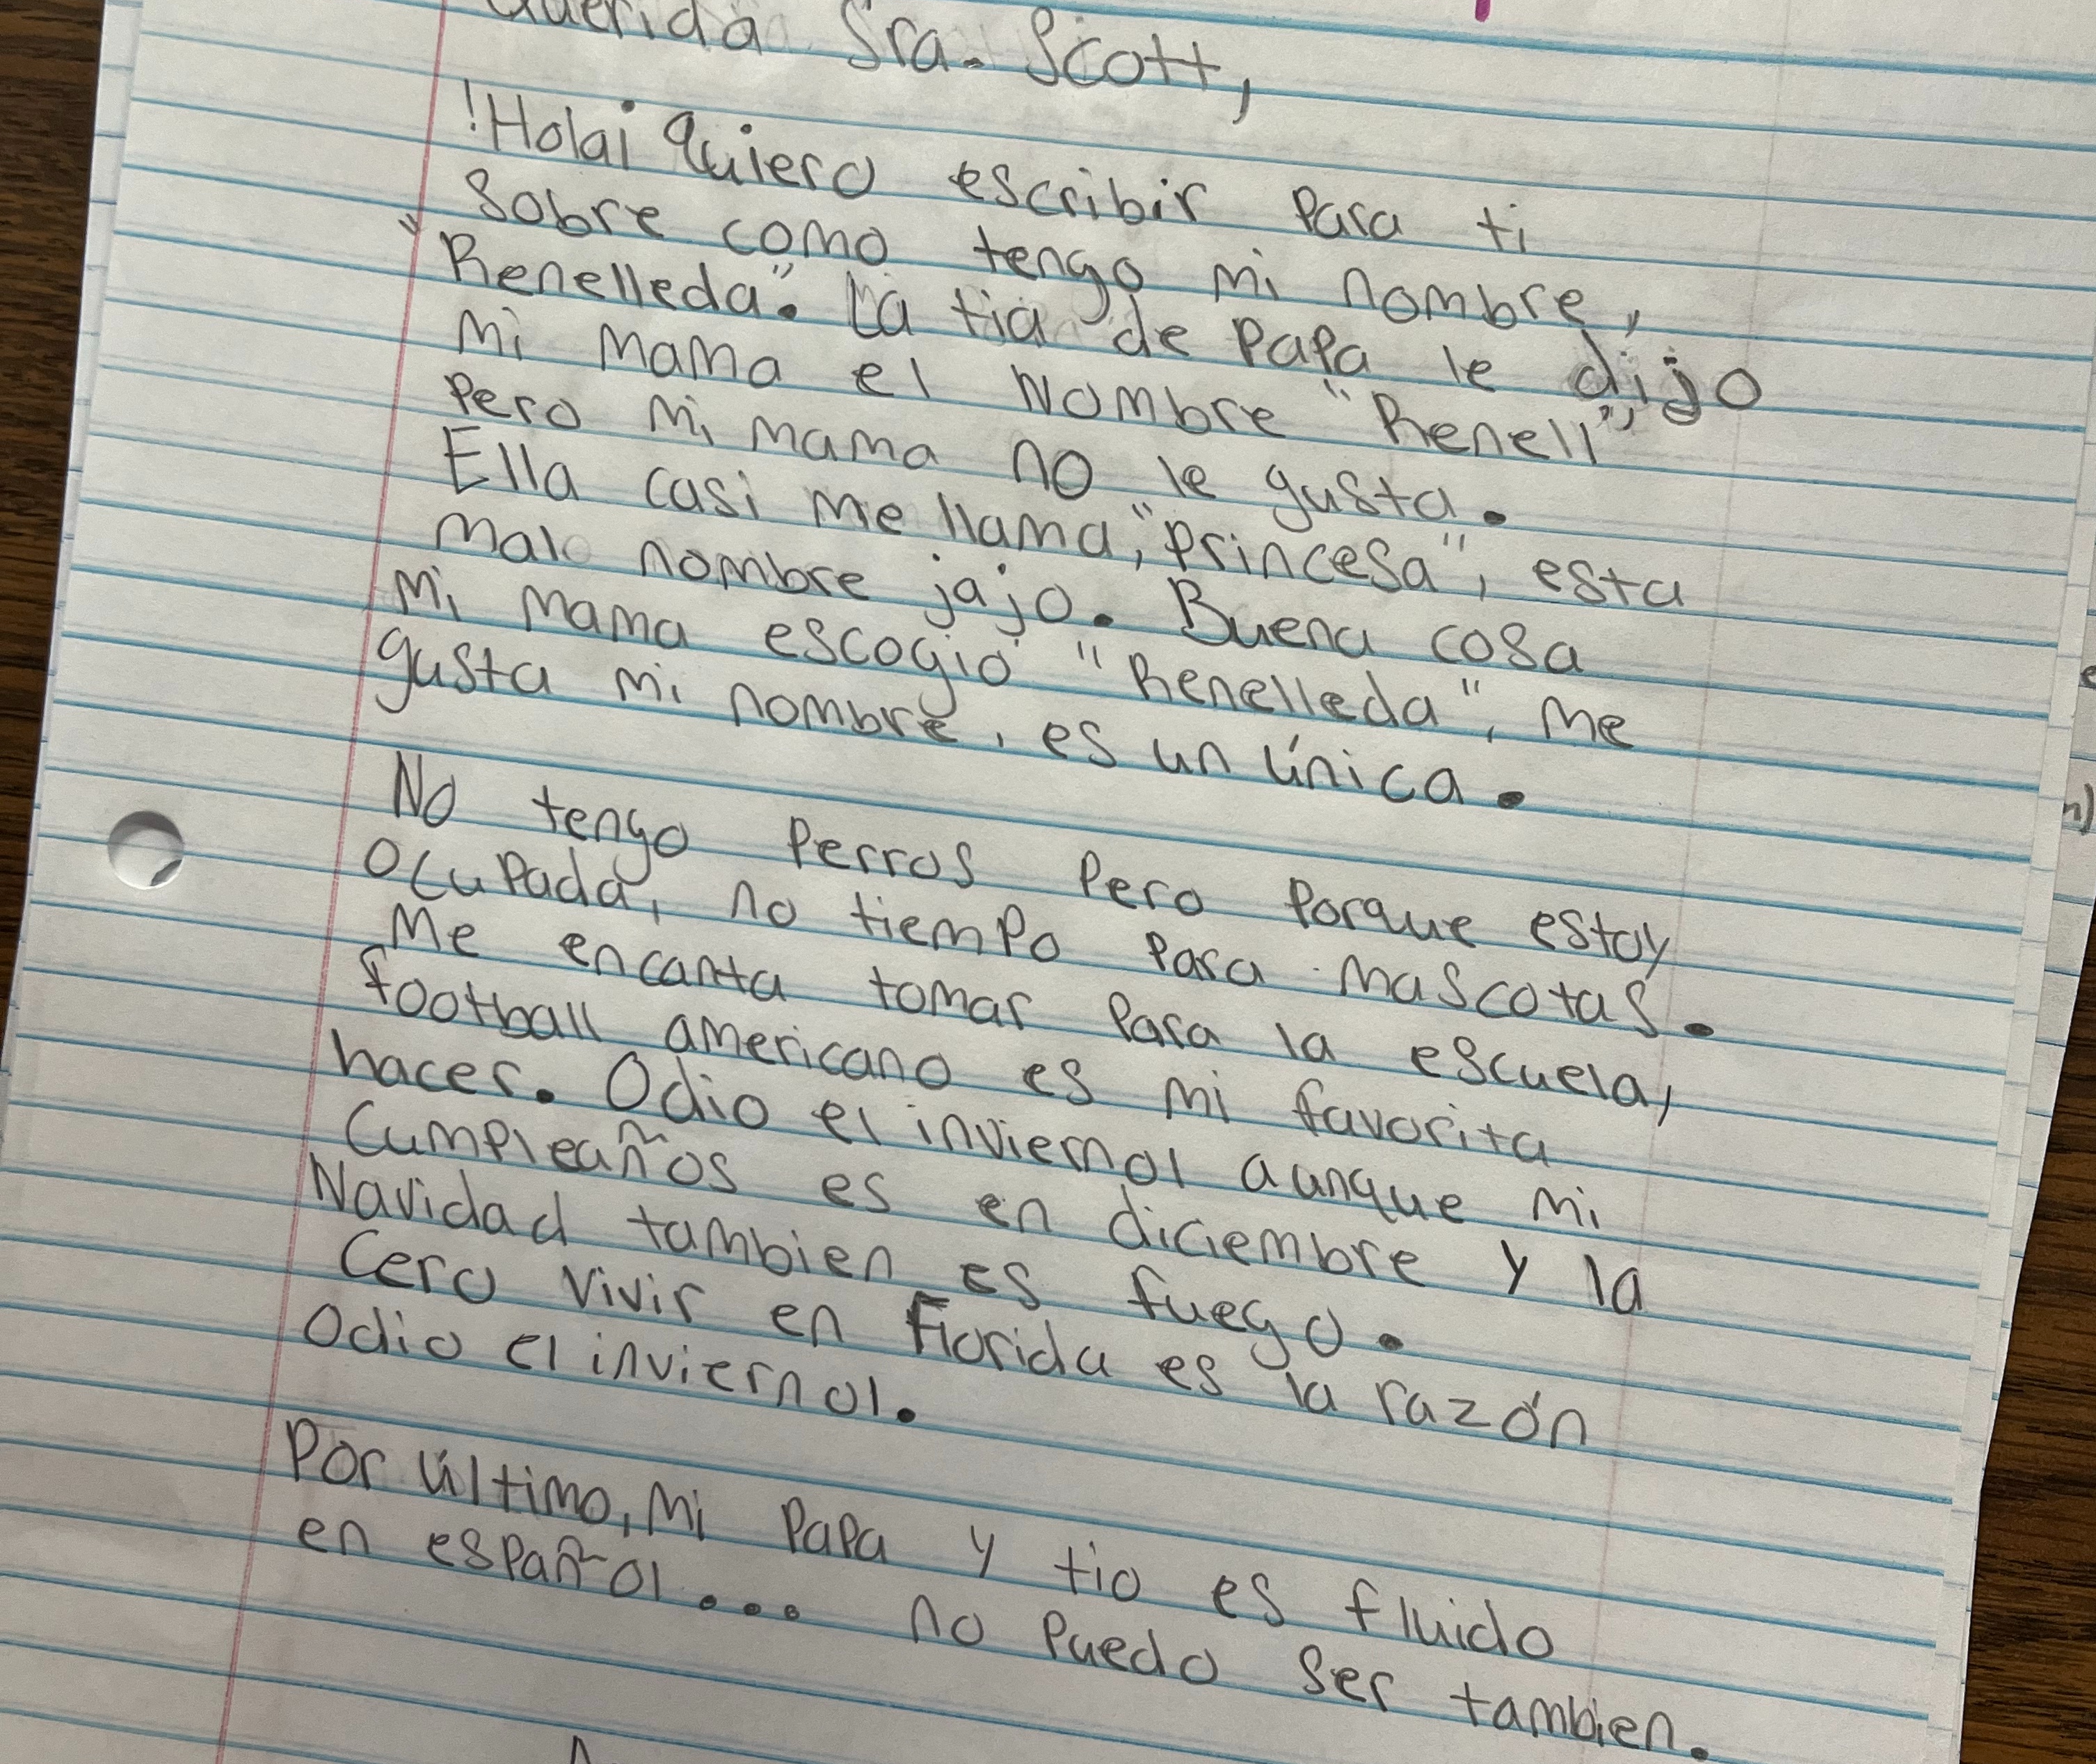 Querida Sra. Scott,
!Hola¡ Quiero escribir para ti
sobre como tengo mi nombre,
"Renelleda". La tia de papa le dijo
mi mama el nombre "Renell",
pero mi mama no le gusta.
Ella casi me llama, "princesa", esta
malo nombre jajo. Buena cosa
mi mama escogió "Renelleda", me
gusta mi nombre, es un única.
No tengo perros pero porque estoy
ocupada, no tiempo para mascotas.
Me encanta tomar para la escuela,
football americano es mi favorita
hacer. Odio el inviernol aunque mi
cumpleaños es en diciembre y la
Navidad tambien es fuego.
Cero vivir en Florida es la razón
odio el inviernol.
Por último, mi papa y tio es fluido
en español... no puedo ser tambien.